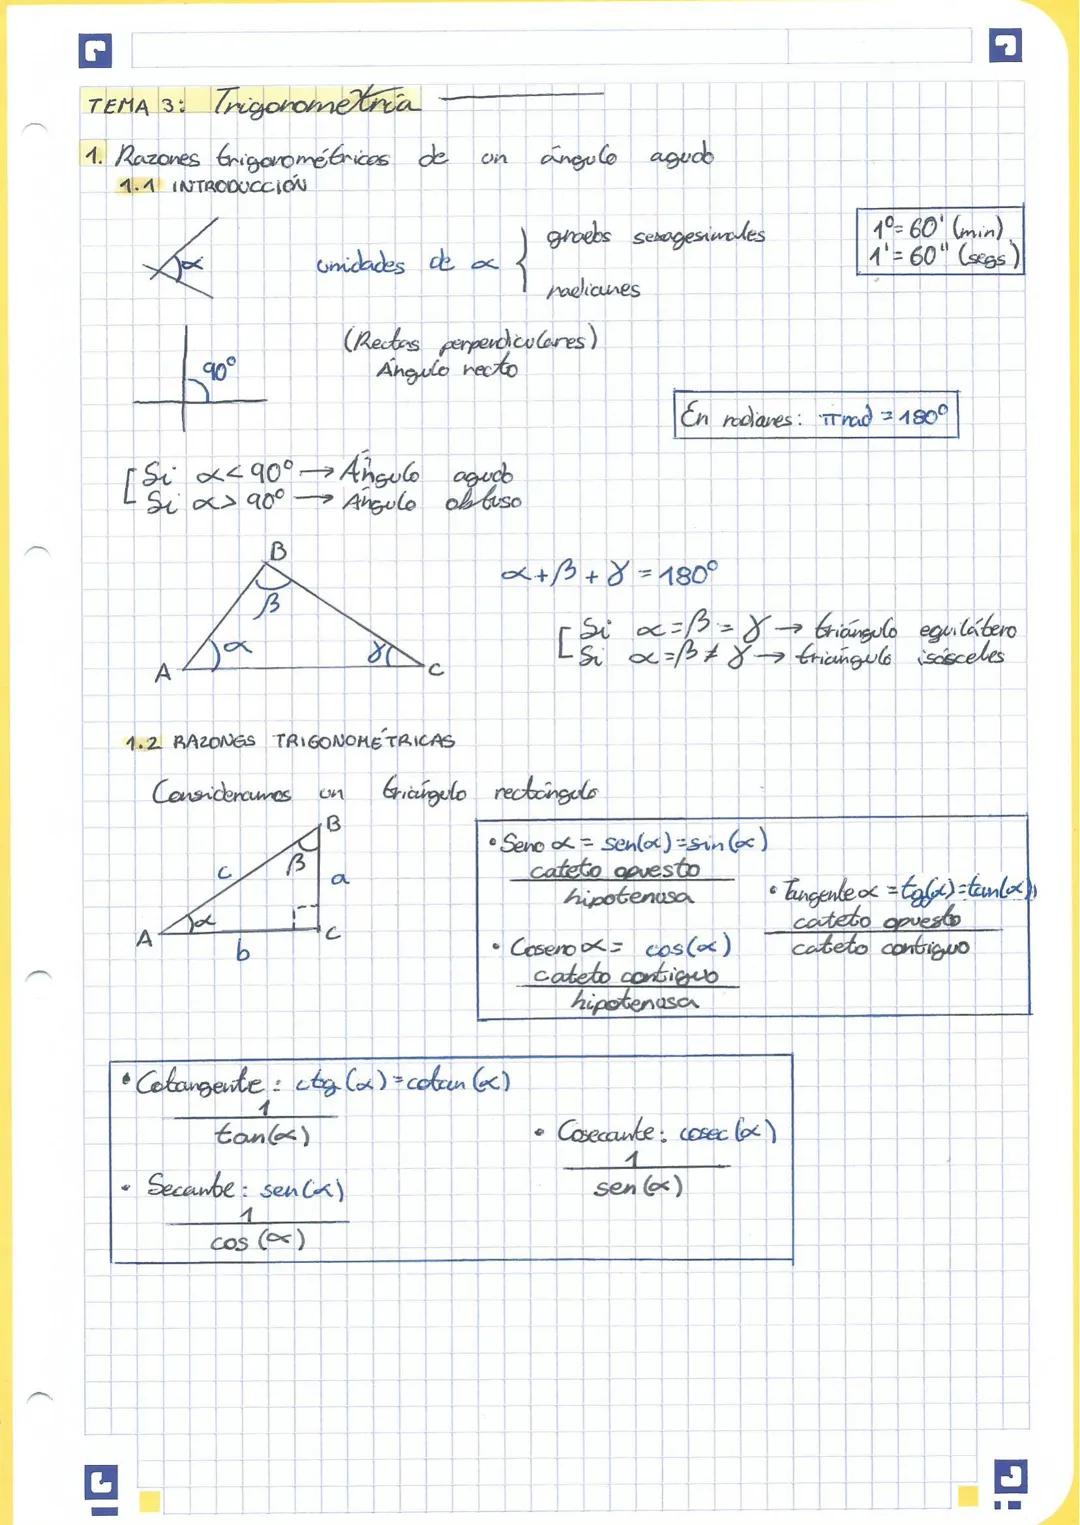 TEMA 3: Trigonometría
1. Razones trigonométricas de un ángulo agudo
1.1 INTRODUCCIÓN
α
unidades de α { grados sexagesimales
radianes
1º = 60' (min)
1' = 60" (segs)
90º
(Rectas perpendiculares)
Ángulo recto
En radianes: π rad = 180º
[ Si α < 90º → Ángulo agudo
Si α > 90º → Ángulo obtuso
B
β
α
γ
A
C
α + β + γ = 180º
[ Si α = β = γ → triángulo equilátero
Si α = β ≠ γ → triángulo isósceles
1.2 RAZONES TRIGONOMÉTRICAS
Consideramos un triángulo rectángulo
B
β
c
a
α
A
b
C
• Seno α = sen(α) = sin(α)
cateto opuesto
hipotenusa
• Coseno α = cos(α)
cateto contiguo
hipotenusa
• Tangente α = tg(α) = tan(α)
cateto opuesto
cateto contiguo
• Cotangente: ctg(α) = cotan(α)
1
tan(α)
• Secante: sen(α)
1
cos(α)
• Cosecante: cosec(α)
1
sen(α)